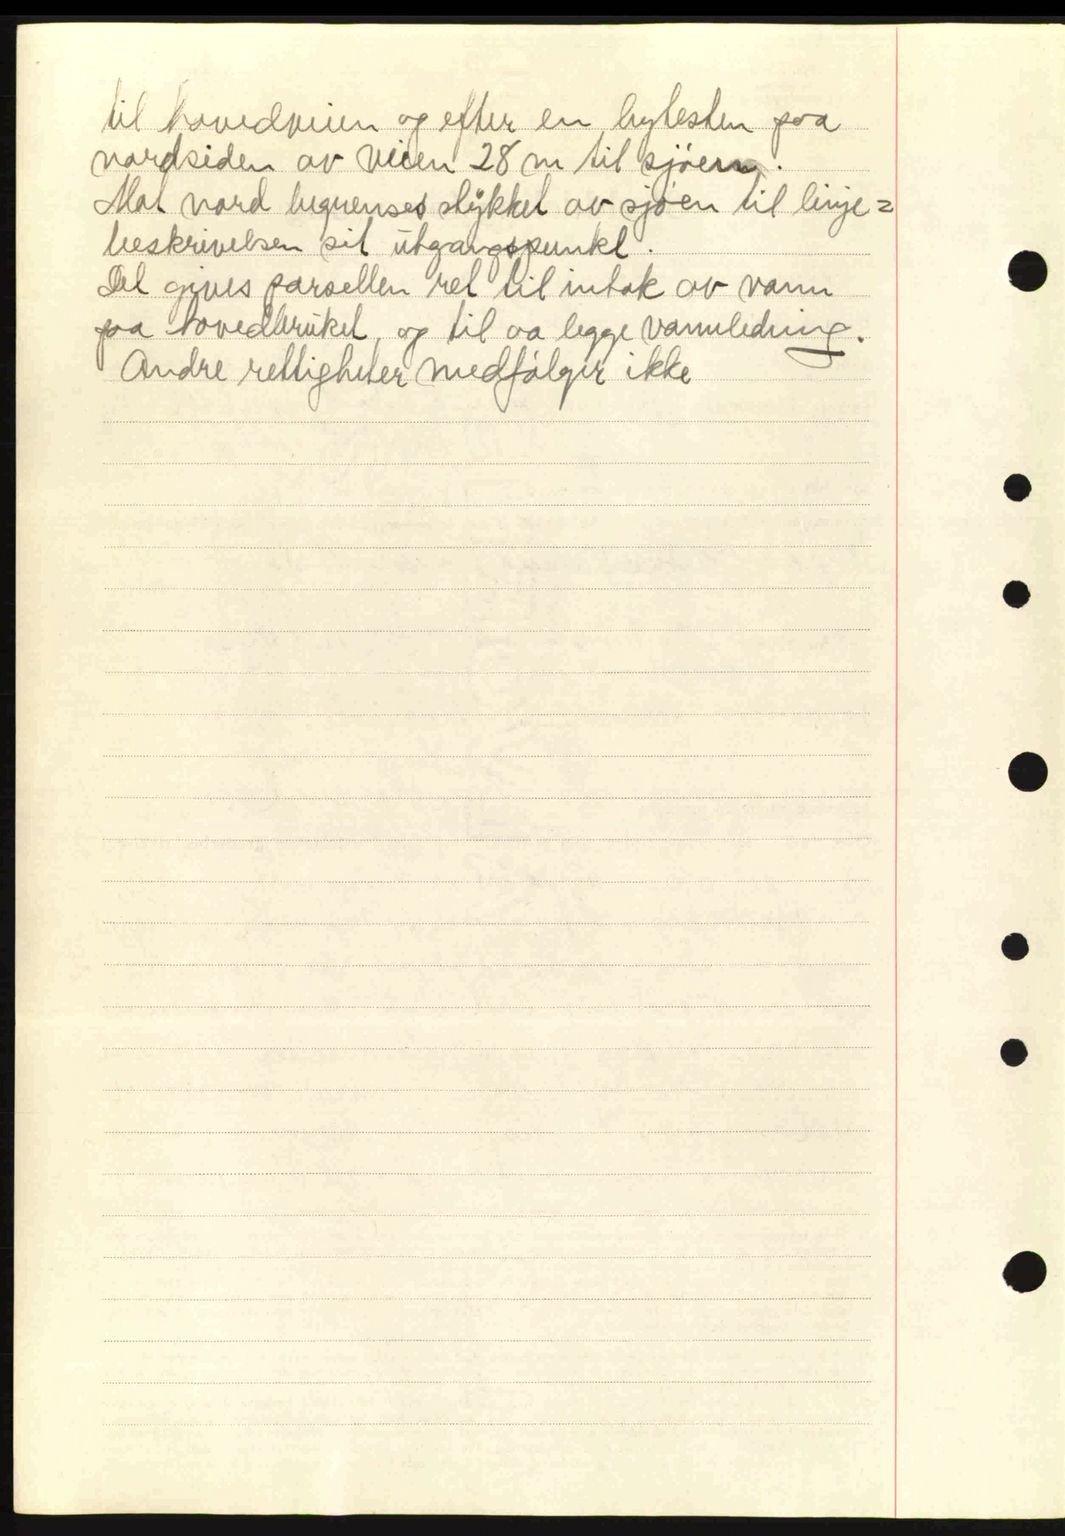 til hovedveien og efter en bytesten paa
nordsiden av veien 28 m til sjøen.
Mot nord begrenses stykket av sjøen til linje=
beskrivelsen sit utgangspunkt.
Det gives parsellen ret til intak av vann
paa hovedbruket, og til aa legge vannledning.
Andre rettigheter medfølger ikke